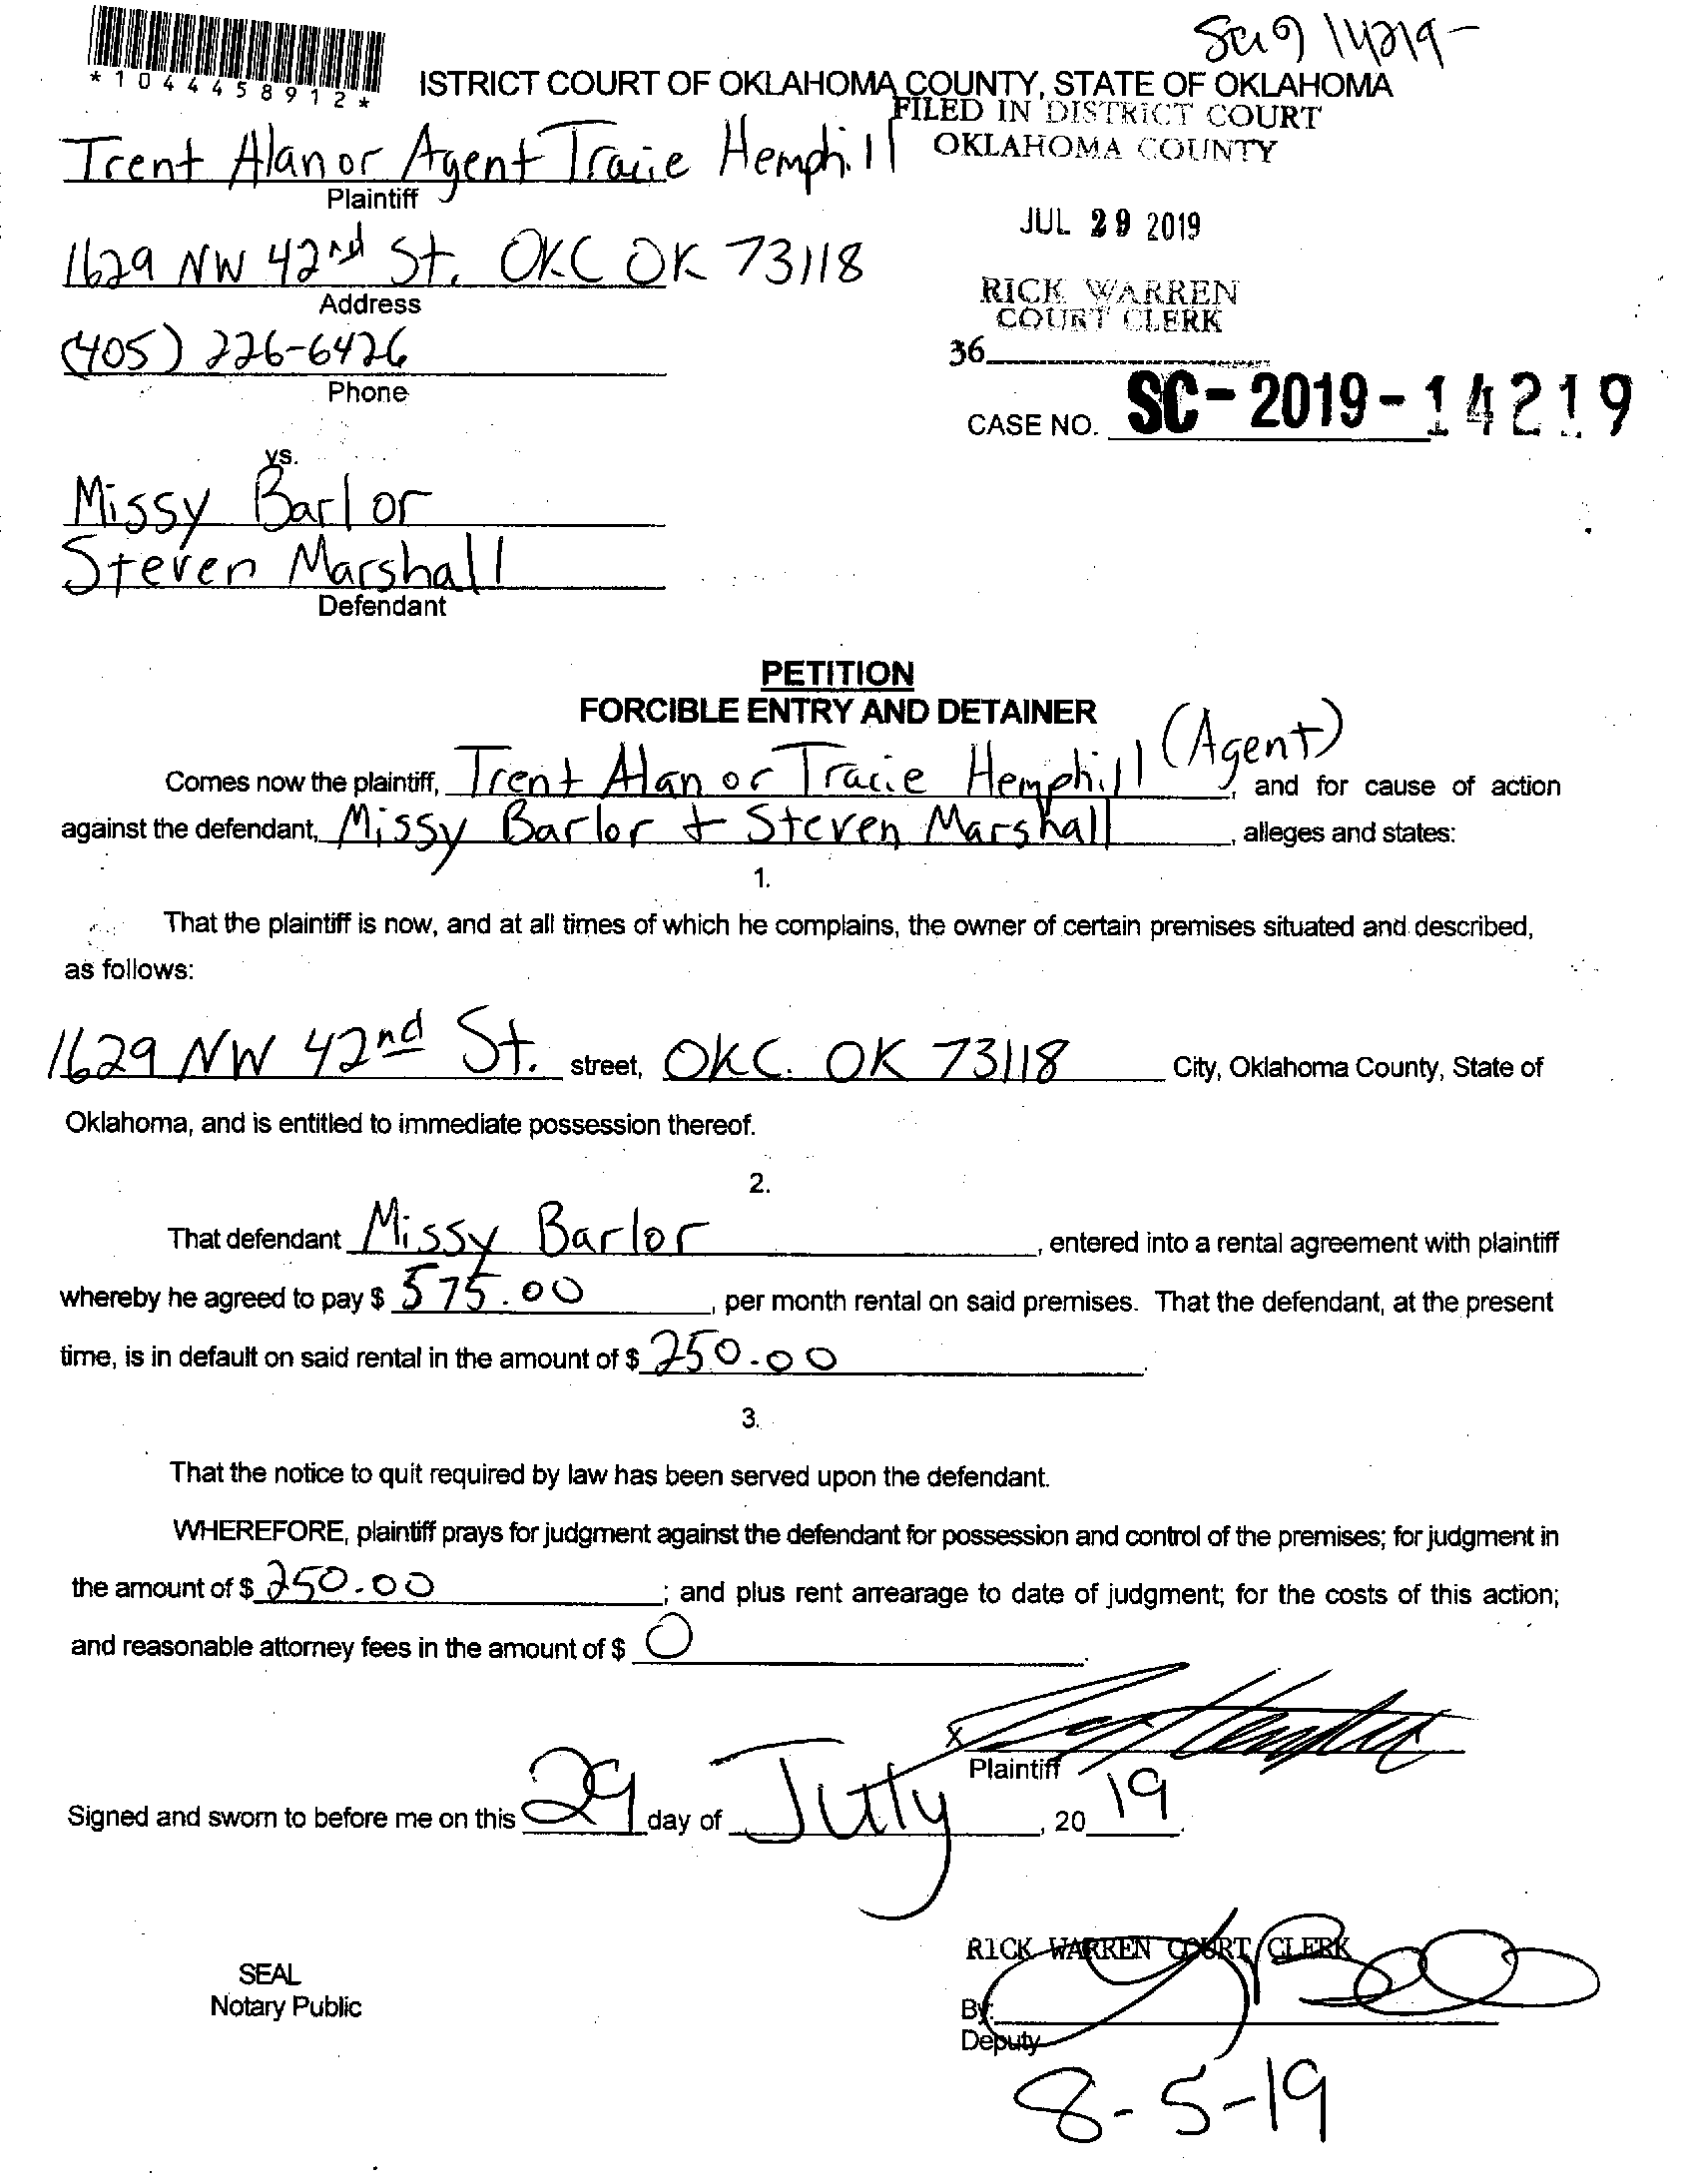 Sc19 14219-
*1044458912*
ISTRICT COURT OF OKLAHOMA COUNTY, STATE OF OKLAHOMA
FILED IN DISTRICT COURT
OKLAHOMA COUNTY
Trent Alan or Agent Tracie Hemphill
Plaintiff
JUL 29 2019
1629 NW 42nd St. OKC OK 73118
Address
RICK WARREN
COURT CLERK
(405) 226-6426
Phone
36
CASE NO. SC-2019-14219
vs.
Missy Barlor
Steven Marshall
Defendant
PETITION
FORCIBLE ENTRY AND DETAINER
Comes now the plaintiff, Trent Alan or Tracie Hemphill (Agent), and for cause of action
against the defendant, Missy Barlor + Steven Marshall, alleges and states:
1.
That the plaintiff is now, and at all times of which he complains, the owner of certain premises situated and described,
as follows:
1629 NW 42nd St. street, OKC. OK 73118 City, Oklahoma County, State of
Oklahoma, and is entitled to immediate possession thereof.
2.
That defendant Missy Barlor, entered into a rental agreement with plaintiff
whereby he agreed to pay $ 575.00, per month rental on said premises. That the defendant, at the present
time, is in default on said rental in the amount of $ 250.00.
3.
That the notice to quit required by law has been served upon the defendant.
WHEREFORE, plaintiff prays for judgment against the defendant for possession and control of the premises; for judgment in
the amount of $ 250.00; and plus rent arrearage to date of judgment; for the costs of this action;
and reasonable attorney fees in the amount of $ 0.
X
Plaintiff
Signed and sworn to before me on this 29 day of July, 20 19.
RICK WARREN COURT CLERK
SEAL
Notary Public
By:
Deputy
8-5-19